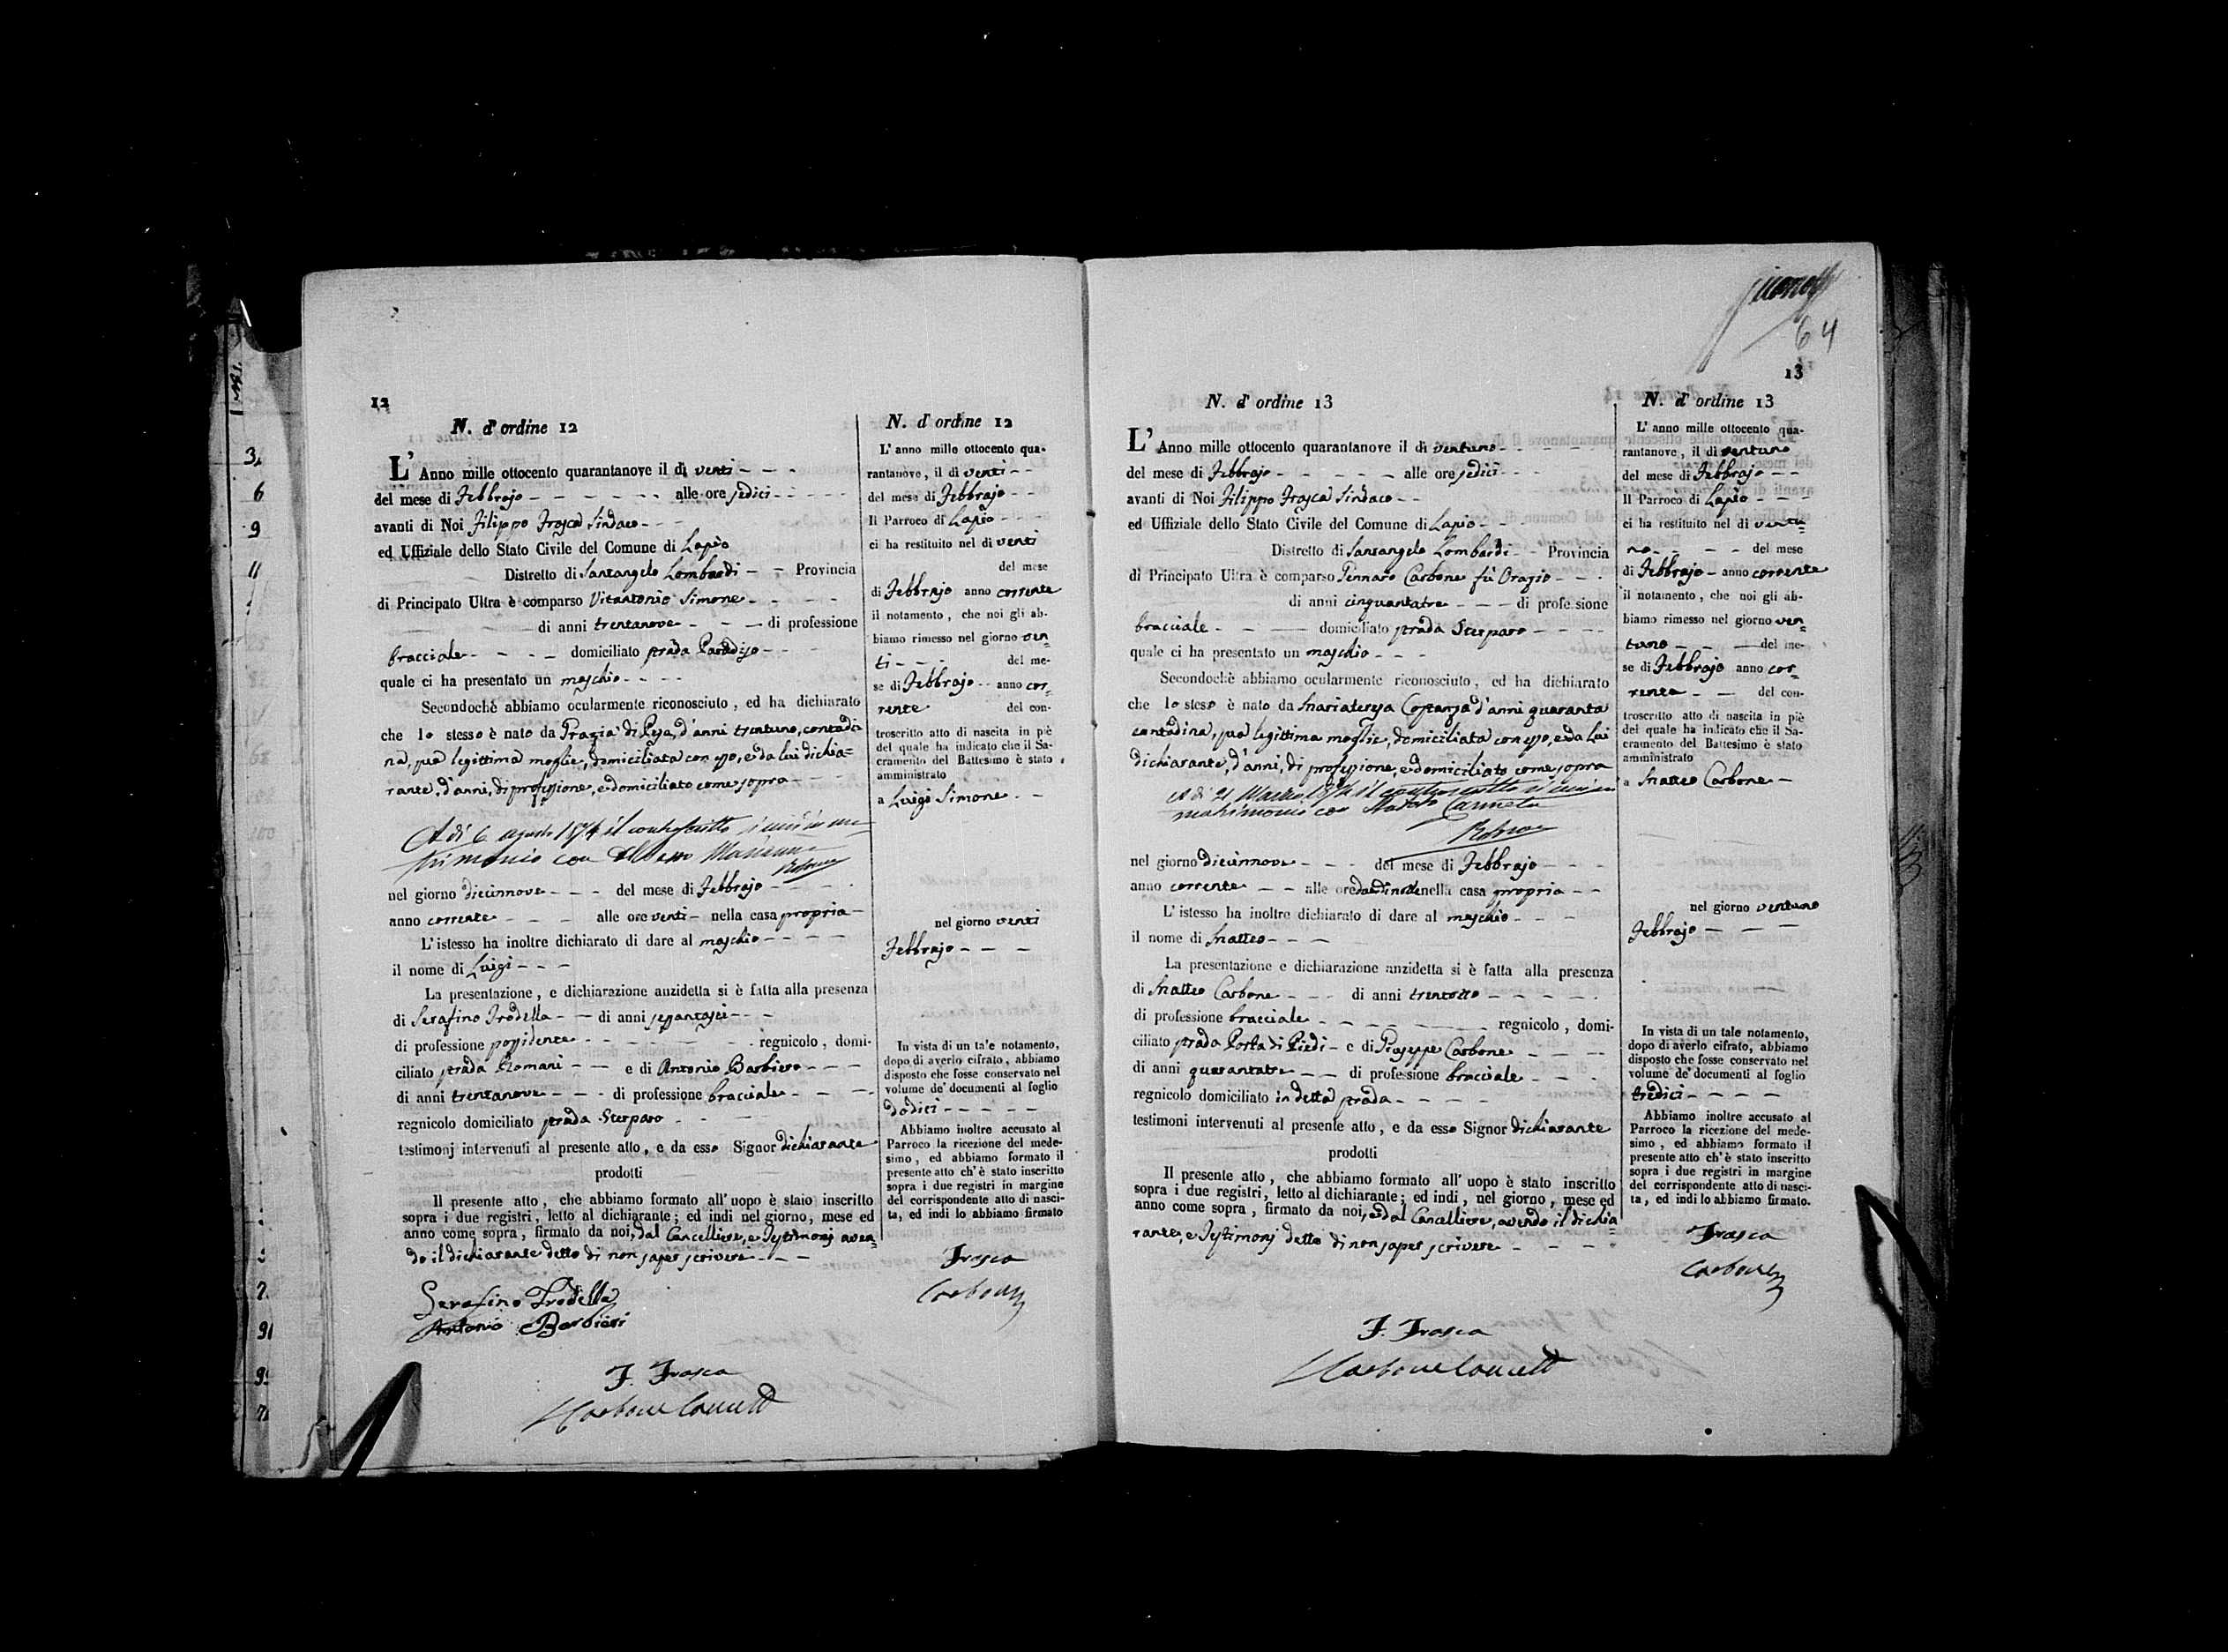 12
N. d'ordine 12
L' Anno mille ottocento quarantanove il dì venti
del mese di Febbrajo alle ore sedici
avanti di Noi Filippo Frasca Sindaco
ed Uffiziale dello Stato Civile del Comune di Lapio
Distretto di Santangelo Lombardi Provincia
di Principato Ultra è comparso Vitantonio Simone
di anni trentanove di professione
bracciale domiciliato strada Paradiso
quale ci ha presentato un maschio
Secondochè abbiamo ocularmente riconosciuto, ed ha dichiarato
che lo stesso è nato da Grazia di Pesa, d'anni trentuno, contadi-
na, sua legittima moglie, domiciliata con esso, e da lui dichia=
rante, d'anni, di professione, e domiciliato come sopra
A dì 6 agosto 1874 il contro scritto s'unì in ma
trimonio con Marianna
nel giorno diecinnove del mese di Febbrajo
anno corrente alle ore venti nella casa propria
L'istesso ha inoltre dichiarato di dare al maschio
il nome di Luigi
La presentazione, e dichiarazione anzidetta si è fatta alla presenza
di Serafino Trodella di anni sessantasei
di professione possidente regnicolo, domi-
ciliato strada Romani e di Antonio Barbiero
di anni trentanove di professione bracciale
regnicolo domiciliato strada Sterparo
testimonj intervenuti al presente atto, e da esso Signor dichiarante
prodotti
Il presente atto, che abbiamo formato all'uopo è stato inscritto
sopra i due registri, letto al dichiarante; ed indi nel giorno, mese ed
anno come sopra, firmato da noi, dal Cancelliere, e Testimonj aven=
do il dichiarante detto di non saper scrivere
Serafino Trodella
Antonio Barbieri
F. Frasca
Carbone Cancell
N. d'ordine 12
L'anno mille ottocento qua-
rantanove, il dì venti
del mese di Febbrajo
Il Parroco di Lapio
ci ha restituito nel dì venti
del mese
di Febbrajo anno corrente
il notamento, che noi gli ab-
biamo rimesso nel giorno ven=
ti del me-
se di Febbrajo anno cor=
rente del con-
troscritto atto di nascita in piè
del quale ha indicato che il Sa-
cramento del Battesimo è stato
amministrato
a Luigi Simone
nel giorno venti
Febbrajo
In vista di un tale notamento,
dopo di averlo cifrato, abbiamo
disposto che fosse conservato nel
volume de' documenti al foglio
dodici
Abbiamo inoltre accusato al
Parroco la ricezione del mede-
simo, ed abbiamo formato il
presente atto ch'è stato inscritto
sopra i due registri in margine
del corrispondente atto di nasci-
ta, ed indi lo abbiamo firmato
Frasca
Carbone
64
13
N. d'ordine 13
L' Anno mille ottocento quarantanove il dì ventuno
del mese di Febbrajo alle ore sedici
avanti di Noi Filippo Frasca Sindaco
ed Uffiziale dello Stato Civile del Comune di Lapio
Distretto di Santangelo Lombardi Provincia
di Principato Ultra è comparso Gennaro Carbone fù Orazio
di anni cinquantatre di professione
bracciale domiciliato strada Sterparo
quale ci ha presentato un maschio
Secondochè abbiamo ocularmente riconosciuto, ed ha dichiarato
che lo stesso è nato da Mariateresa Costanza d'anni quaranta
contadina, sua legittima moglie, domiciliata con esso, e da lui
dichiarante, d'anni, di professione, e domiciliato come sopra
A dì 21 Marzo il controscritto s'unì in
matrimonio con Carmela
nel giorno diecinnove del mese di Febbrajo
anno corrente alle ore nella casa propria
L'istesso ha inoltre dichiarato di dare al maschio
il nome di Matteo
La presentazione e dichiarazione anzidetta si è fatta alla presenza
di Matteo Carbone di anni trentotto
di professione bracciale regnicolo, domi-
ciliato strada Porta di Piedi e di Giuseppe Carbone
di anni quarantatre di professione bracciale
regnicolo domiciliato in detta strada
testimoni intervenuti al presente atto, e da esso Signor dichiarante
prodotti
Il presente atto, che abbiamo formato all'uopo è stato inscritto
sopra i due registri, letto al dichiarante; ed indi, nel giorno, mese ed
anno come sopra, firmato da noi, e dal Cancelliere, avendo il dichia=
rante, e Testimonj detto di non saper scrivere
F. Frasca
Carbone Cancell
N. d'ordine 13
L'anno mille ottocento qua-
rantanove, il dì ventuno
del mese di Febbrajo
Il Parroco di Lapio
ci ha restituito nel dì ventu=
no del mese
di Febbrajo anno corrente
il notamento, che noi gli ab-
biamo rimesso nel giorno ven=
tuno del me-
se di Febbrajo anno cor=
rente del con-
troscritto atto di nascita in piè
del quale ha indicato che il Sa-
cramento del Battesimo è stato
amministrato
a Matteo Carbone
nel giorno ventuno
Febbrajo
In vista di un tale notamento,
dopo di averlo cifrato, abbiamo
disposto che fosse conservato nel
volume de' documenti al foglio
tredici
Abbiamo inoltre accusato al
Parroco la ricezione del mede-
simo, ed abbiamo formato il
presente atto ch'è stato inscritto
sopra i due registri in margine
del corrispondente atto di nasci-
ta, ed indi lo abbiamo firmato.
Frasca
Carbone